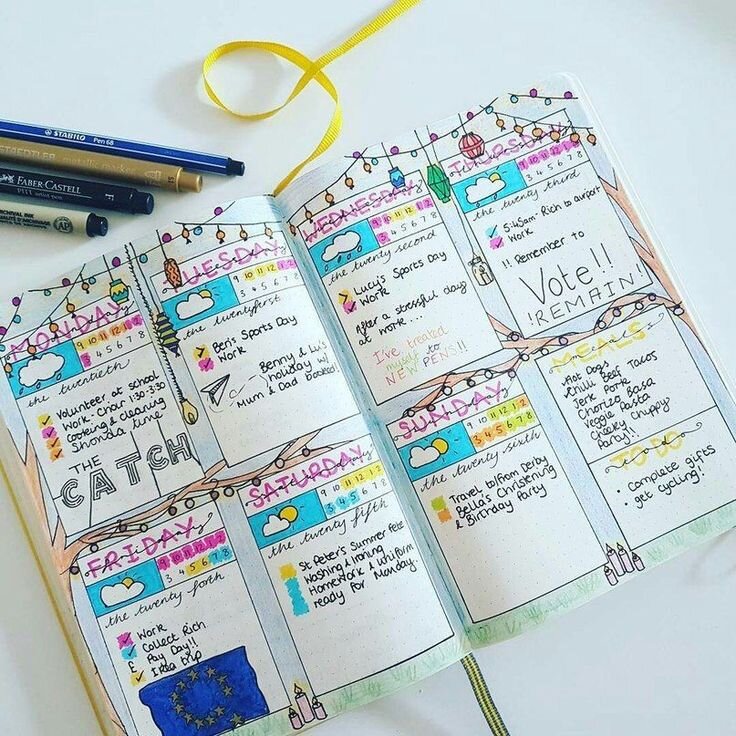 STABILO Pen 68
STAEDTLER metallic marker
FABER CASTELL
PITT artist pen F
ARCHIVAL INK AP
MONDAY
9 10 11 12 1 2
3 4 5 6 7 8
the twentieth
Volunteer at school
Work. Chair 1:30-3:30
Cooking & cleaning
Shonda time
THE
CATCH
TUESDAY
9 10 11 12 1 2
3 4 5 6 7 8
the twentyfirst
Ben's Sports Day
Work
Benny & Lu's
holiday w/
Mum & Dad booked!
WEDNESDAY
9 10 11 12 1 2
3 4 5 6 7 8
the twenty second
Lucy's Sports Day
Work
After a stressful day
at work...
I've treated
myself to
NEW PENS!!
THURSDAY
9 10 11 12 1 2
3 4 5 6 7 8
the twenty third
5:45am Rich to airport
Work
!! Remember to
Vote!!
!REMAIN!
FRIDAY
9 10 11 12 1 2
3 4 5 6 7 8
the twenty forth
Work
Collect Rich
£ Pay Day!!
Ikea trip
SATURDAY
9 10 11 12 1 2
3 4 5 6 7 8
the twenty fifth
St Peter's Summer Fete
Washing & Ironing
Homework & uniform
ready for Monday.
SUNDAY
9 10 11 12 1 2
3 4 5 6 7 8
the twenty sixth
Travel to/from Derby
Bella's Christening
& Birthday Party
MEALS
Hot Dogs
Chilli Beef Tacos
Jerk Pork
Chorizo Basa
Veggie Pasta
Cheeky Chippy
Party!!
TO DO
• Complete gifts
• get cycling!!